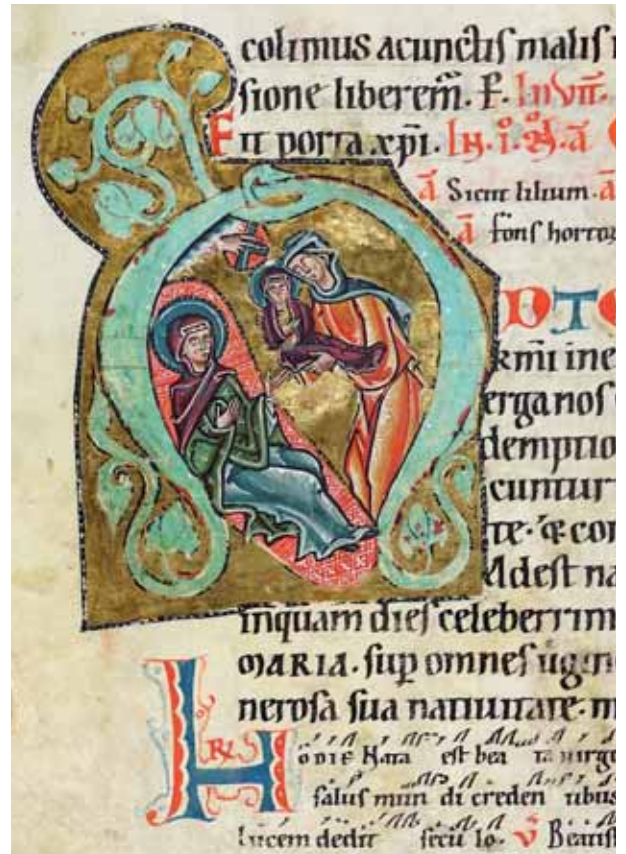 colimus acunctis malis
sione liberem̄. P. Invit̄.
Fit porta xp̄i. In. i. N. ā
ā Sicut lilium. ā
ā fons hortoꝝ
DTO
krm̄i ine
erga nos
demptio
cuntur
te. &
Adest na
inquam dies celeberrim
MARIA. sup omnes uirgin
nerosa sua natiuitate. m
HODIE Nata est bea ta uirgo
salus mun di creden tibus
lucem dedit secu lo. V Beatis